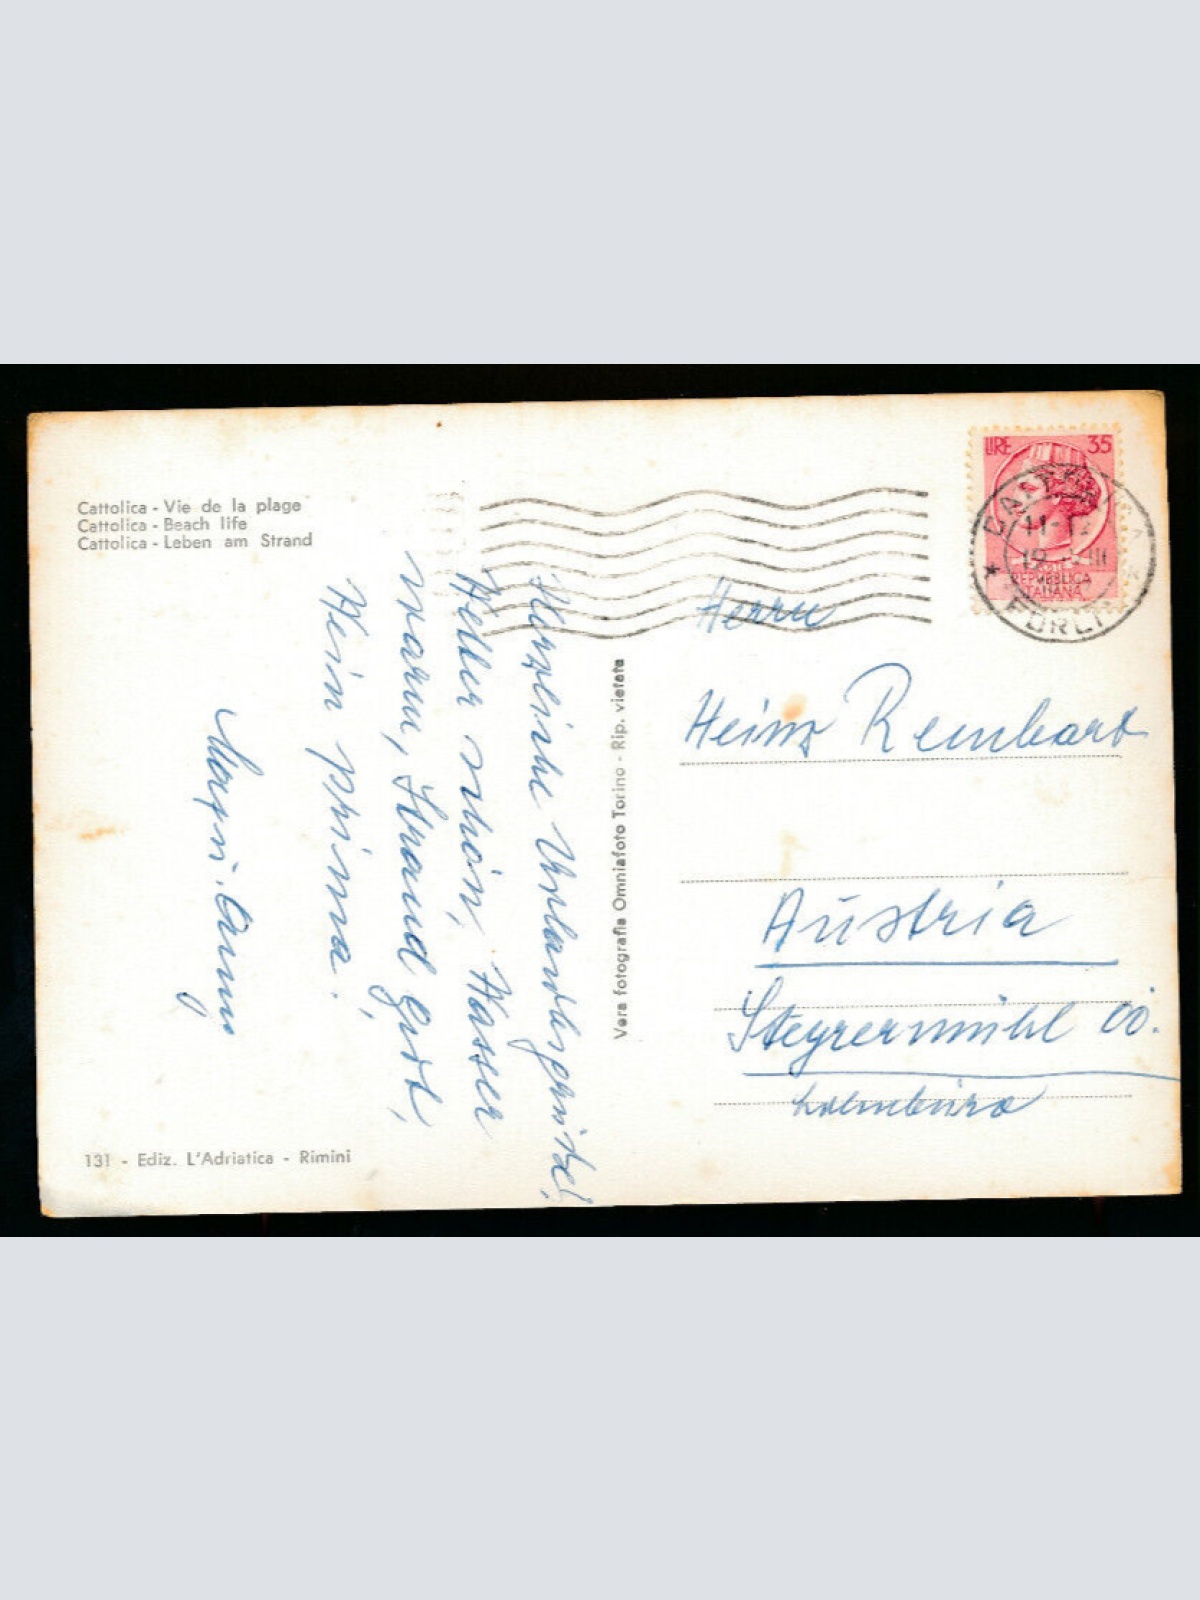 Cattolica - Vie de la plage
Cattolica - Beach life
Cattolica - Leben am Strand
Herzliche Urlaubsgrüße!
Wetter schön, Wasser
warm, Strand gut,
Wein prima.
131 - Ediz. L'Adriatica - Rimini
Vera fotografia Omniafoto Torino - Rip. vietata
LIRE 35
REPVBBLICA
ITALIANA
FORLI
Herrn
Heinz Reinhart
Austria
Steyrermühl OÖ.
Lohnbüro